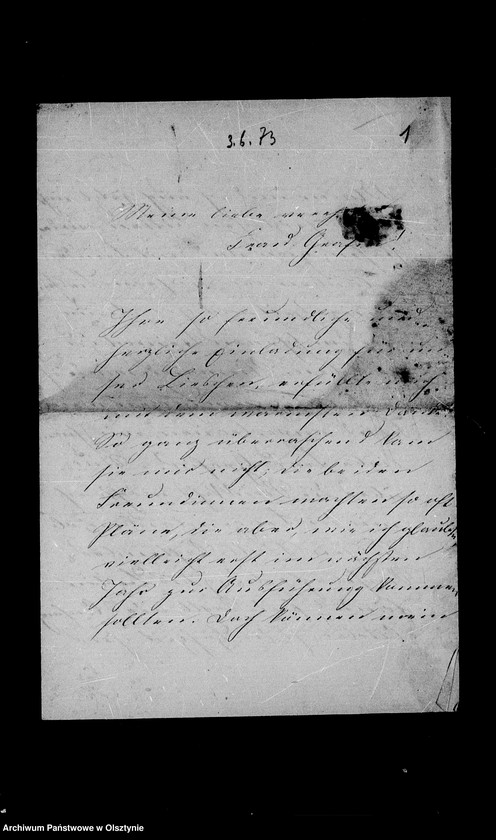 3.6.73
1
Meine liebe vereh
Frau Gräfin!
Ihre so freundliche und
herzliche Einladung für un-
ser Lieschen, erfüllte mich
mit dem wärmsten Dank.
So ganz überraschend kam
sie mir nicht; die beiden
Freundinnen machten so oft
Pläne, die aber, wie ich glaubte,
vielleicht erst im nächsten
Jahr zur Ausführung kommen
sollten. Doch können wein
Archiwum Państwowe w Olsztynie